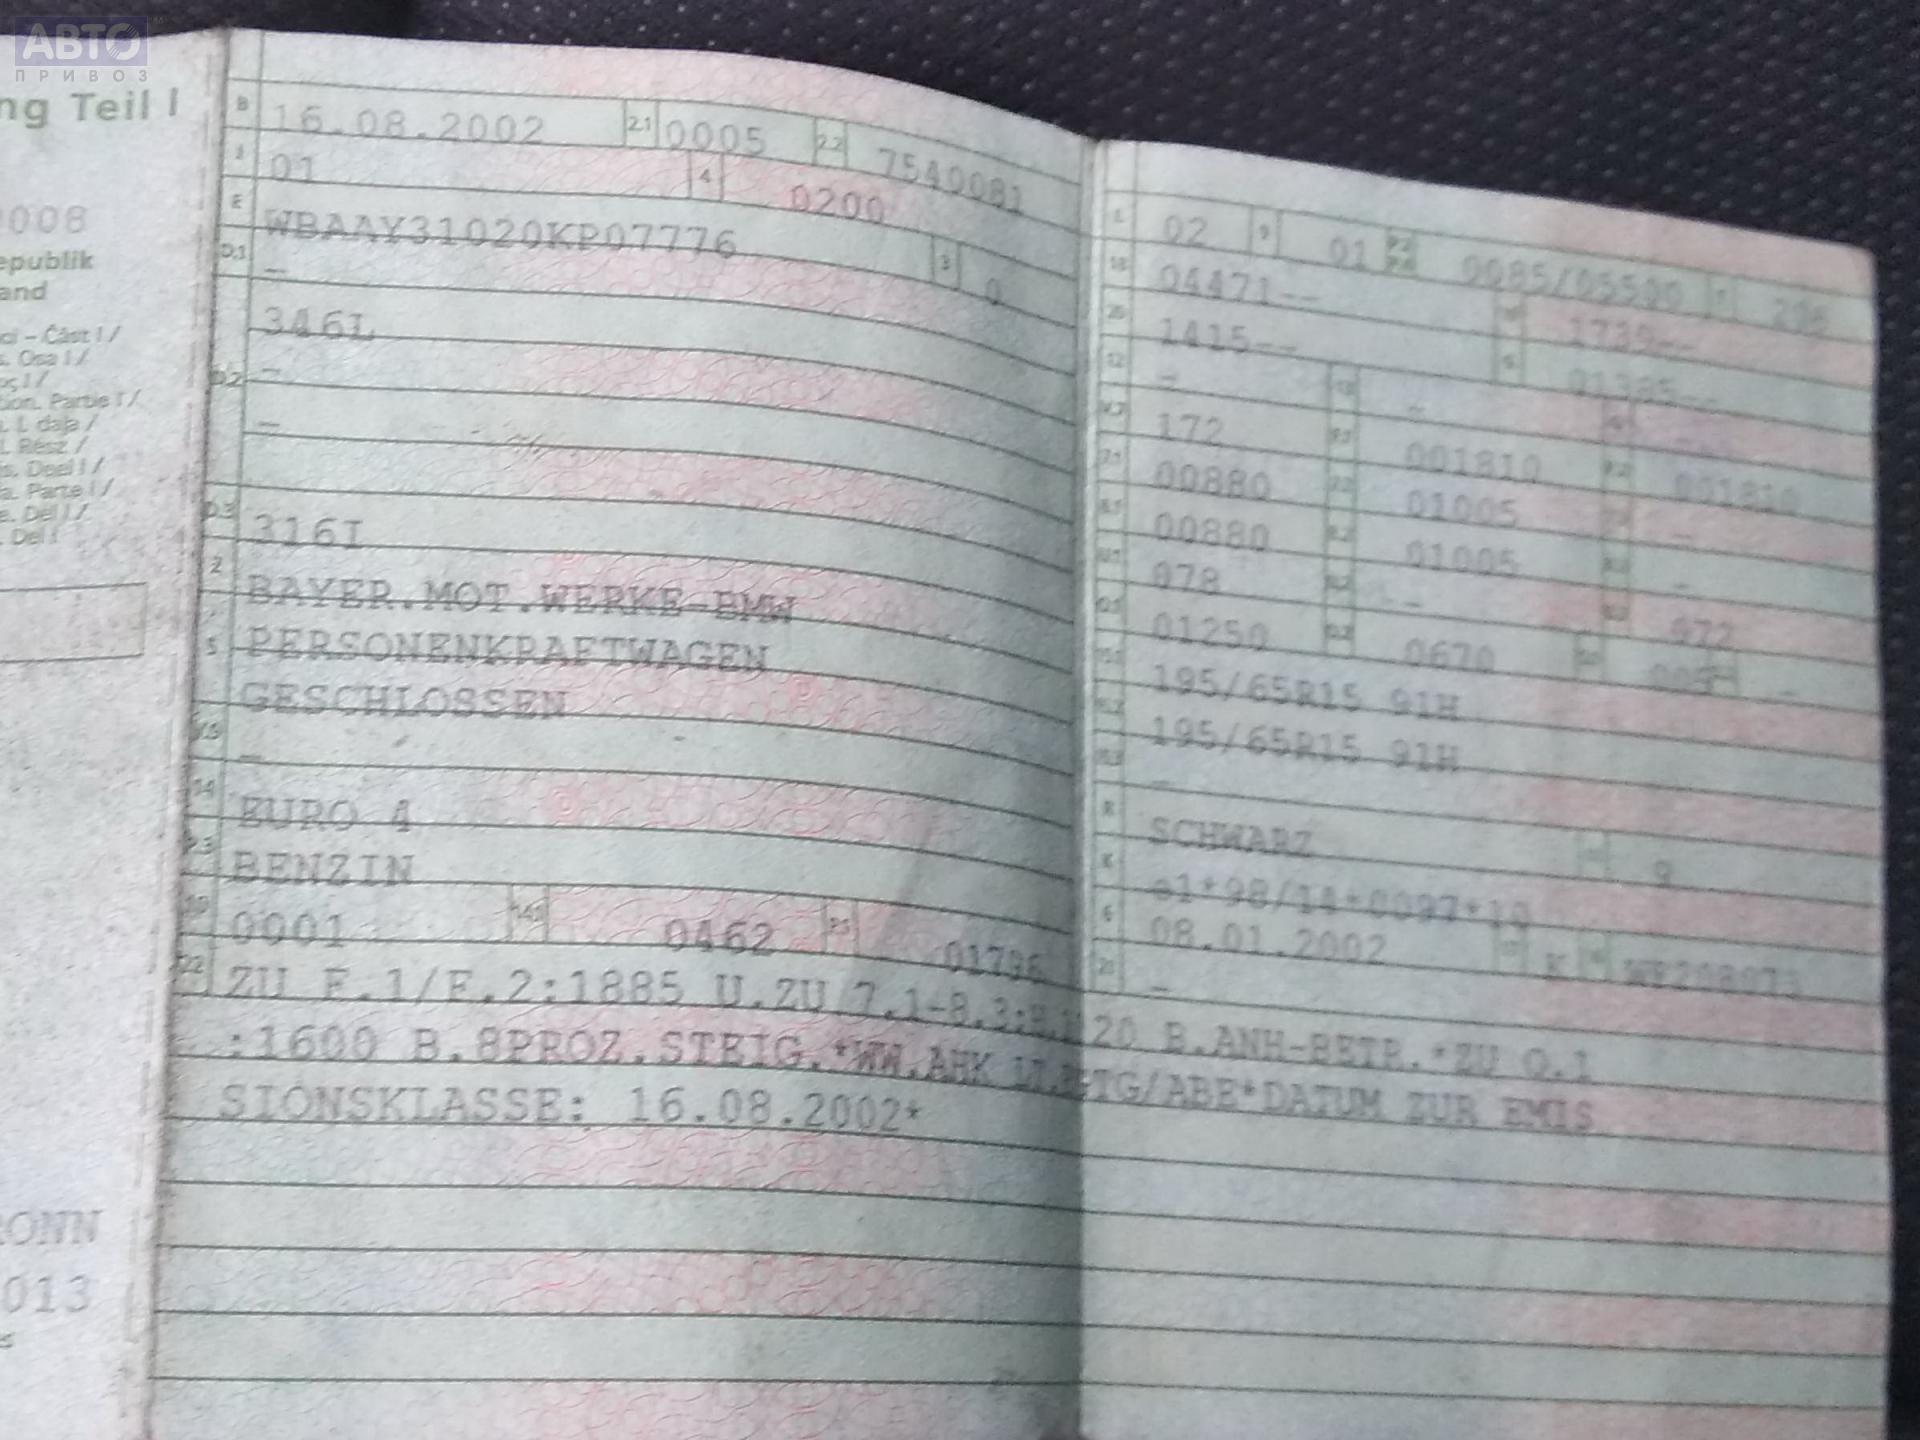 АВТО
ПРИВОЗ
ng Teil I
008
epublik
and
ci – Část I /
s. Osa I /
tion. Partie I /
I. daļa /
I. Rész /
is. Deel I /
a. Parte I /
e. Del I /
. Del I
RONN
013
B 16.08.2002 2.1 0005 2.2 7540081
J 01 4 0200
E WBAAY31020KP07776 3 0
D.1 –
346L
D.2 –
–
D.3 316I
2 BAYER.MOT.WERKE-BMW
5 PERSONENKRAFTWAGEN
GESCHLOSSEN
V.9 –
14 EURO 4
P.3 BENZIN
10 0001 14.1 0462 P.1 01796
22 ZU F.1/F.2:1885 U.ZU 7.1-8.3:
:1600 B.8PROZ.STEIG.*WW.AHK LT.
SIONSKLASSE: 16.08.2002*
L 02 9 01 0085/05500 T 206
18 04471-- 19 1739--
20 1415-- G 01385--
12 – 13 –
V.7 172 F.1 001810 F.2 001810
7.1 00880 7.2 01005 –
8.1 00880 8.2 01005 –
U.1 078 – 072
O.1 01250 O.2 0670
15.1 195/65R15 91H
15.2 195/65R15 91H
15.3 –
R SCHWARZ 9
K e1*98/14*0097*10
6 08.01.2002 17 K 16
21 –
20 B.ANH-BETR.*ZU O.1
TG/ABE*DATUM ZUR EMIS